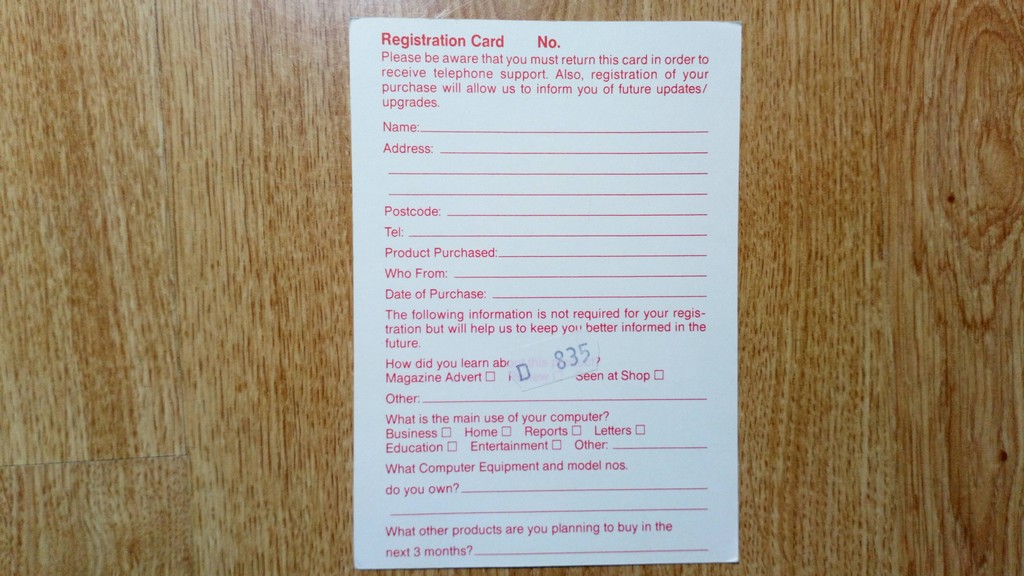 Registration Card No.
Please be aware that you must return this card in order to
receive telephone support. Also, registration of your
purchase will allow us to inform you of future updates/
upgrades.
Name:
Address:
Postcode:
Tel:
Product Purchased:
Who From:
Date of Purchase:
The following information is not required for your regis-
tration but will help us to keep you better informed in the
future.
How did you learn ?
Magazine Advert Seen at Shop
D 835
Other:
What is the main use of your computer?
Business Home Reports Letters
Education Entertainment Other:
What Computer Equipment and model nos.
do you own?
What other products are you planning to buy in the
next 3 months?